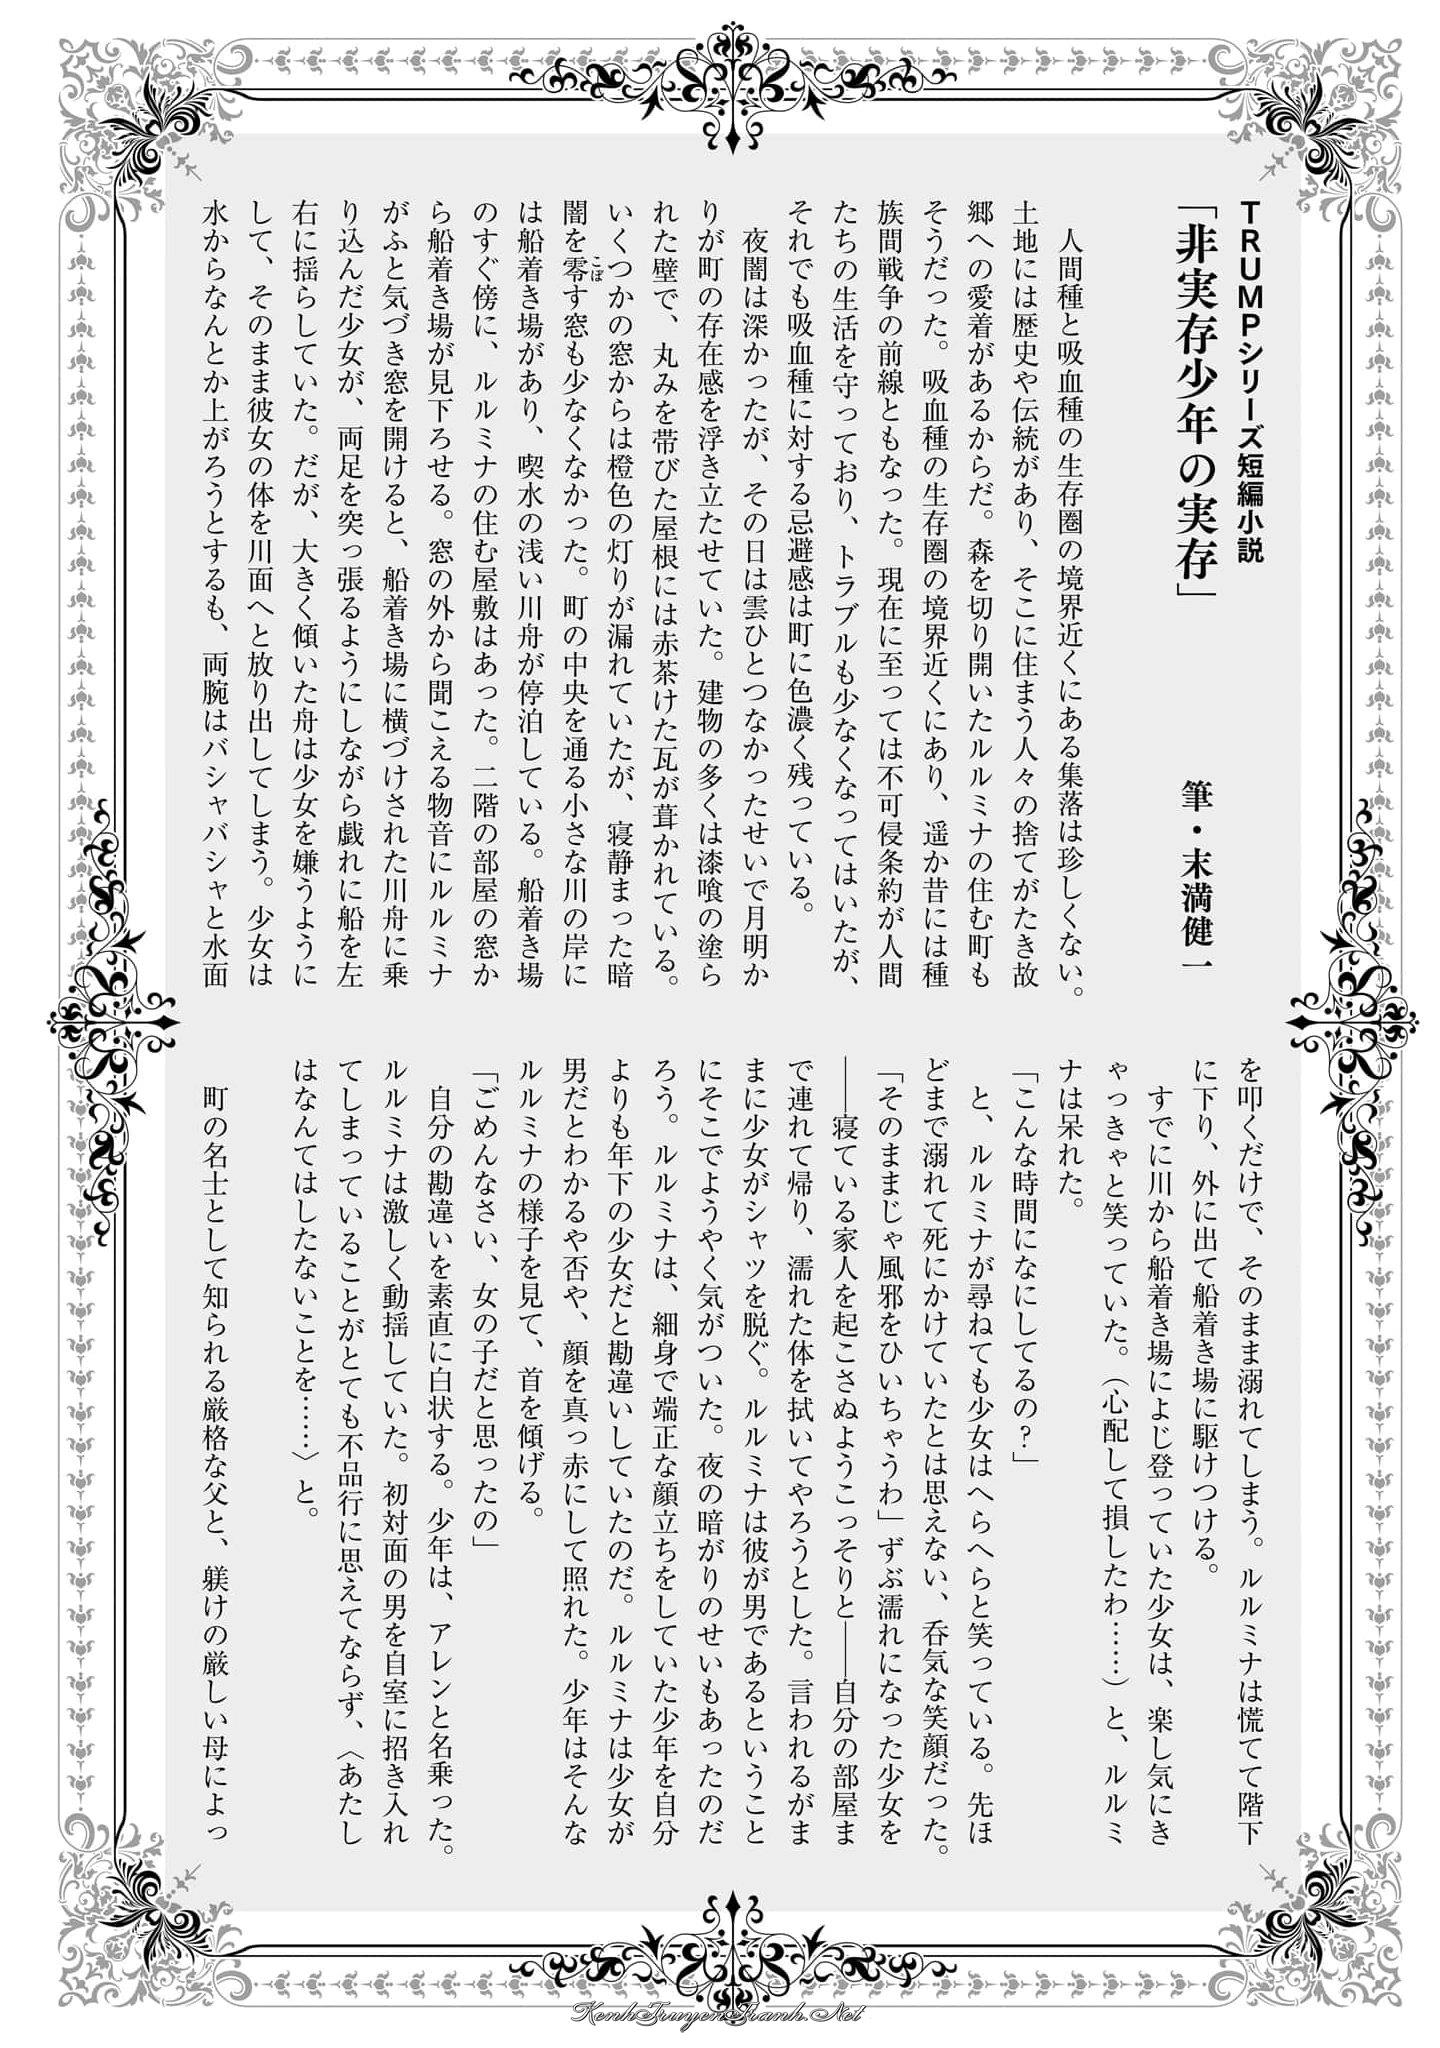 TRUMPシリーズ短編小説
「非実存少年の実存」
筆・末満健一
人間種と吸血種の生存圏の境界近くにある集落は珍しくない。
土地には歴史や伝統があり、そこに住まう人々の捨てがたき故
郷への愛着があるからだ。森を切り開いたルルミナの住む町も
そうだった。吸血種の生存圏の境界近くにあり、遥か昔には種
族間戦争の前線ともなった。現在に至っては不可侵条約が人間
たちの生活を守っており、トラブルも少なくなってはいたが、
それでも吸血種に対する忌避感は町に色濃く残っている。
夜闇は深かったが、その日は雲ひとつなかったせいで月明か
りが町の存在感を浮き立たせていた。建物の多くは漆喰の塗ら
れた壁で、丸みを帯びた屋根には赤茶けた瓦が葺かれている。
いくつかの窓からは橙色の灯りが漏れていたが、寝静まった暗
闇を零こぼす窓も少なくなかった。町の中央を通る小さな川の岸に
は船着き場があり、喫水の浅い川舟が停泊している。船着き場
のすぐ傍に、ルルミナの住む屋敷はあった。二階の部屋の窓か
ら船着き場が見下ろせる。窓の外から聞こえる物音にルルミナ
がふと気づき窓を開けると、船着き場に横づけされた川舟に乗
り込んだ少女が、両足を突っ張るようにしながら戯れに船を左
右に揺らしていた。だが、大きく傾いた舟は少女を嫌うように
して、そのまま彼女の体を川面へと放り出してしまう。少女は
水からなんとか上がろうとするも、両腕はバシャバシャと水面
を叩くだけで、そのまま溺れてしまう。ルルミナは慌てて階下
に下り、外に出て船着き場に駆けつける。
すでに川から船着き場によじ登っていた少女は、楽し気にき
ゃっきゃと笑っていた。（心配して損したわ……）と、ルルミ
ナは呆れた。
「こんな時間になにしてるの？」
と、ルルミナが尋ねても少女はへらへらと笑っている。先ほ
どまで溺れて死にかけていたとは思えない、呑気な笑顔だった。
「そのままじゃ風邪をひいちゃうわ」ずぶ濡れになった少女を
――寝ている家人を起こさぬようこっそりと――自分の部屋ま
で連れて帰り、濡れた体を拭いてやろうとした。言われるがま
まに少女がシャツを脱ぐ。ルルミナは彼が男であるということ
にそこでようやく気がついた。夜の暗がりのせいもあったのだ
ろう。ルルミナは、細身で端正な顔立ちをしていた少年を自分
よりも年下の少女だと勘違いしていたのだ。ルルミナは少女が
男だとわかるや否や、顔を真っ赤にして照れた。少年はそんな
ルルミナの様子を見て、首を傾げる。
「ごめんなさい、女の子だと思ったの」
自分の勘違いを素直に白状する。少年は、アレンと名乗った。
ルルミナは激しく動揺していた。初対面の男を自室に招き入れ
てしまっていることがとても不品行に思えてならず、〈あたし
はなんてはしたないことを……〉と。
町の名士として知られる厳格な父と、躾けの厳しい母によっ
KenhTruyenTranh.Net